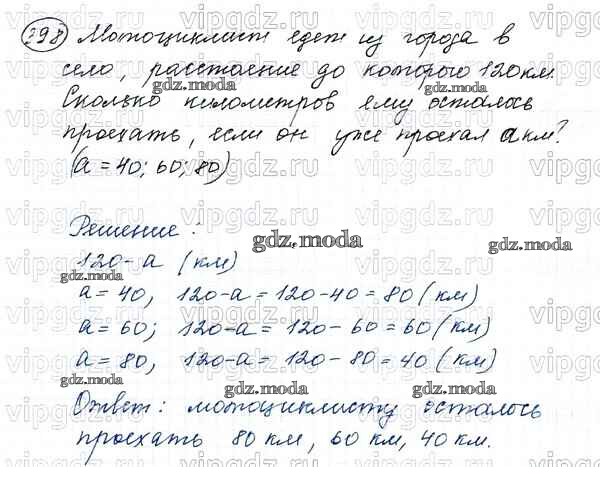 298 Мотоциклист едет из города в
село, расстоение до которого 120 км.
Сколько километров ему осталось
проехать, если он уже проехал a км?
(a = 40; 60; 80)
Решение:
120-a (км)
a = 40, 120-a = 120-40 = 80 (км)
a = 60; 120-a = 120-60 = 60 (км)
a = 80, 120-a = 120-80 = 40 (км)
Ответ: мотоциклисту осталось
проехать 80 км, 60 км, 40 км.
vipgdz.ru
gdz.moda